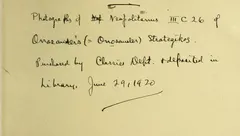 Photographs of Neapolitanus III C 26 of
Onosander's (= Onosander) Strategikos.
Purchased by Classics Dept. & deposited in
Library, June 29, 1920